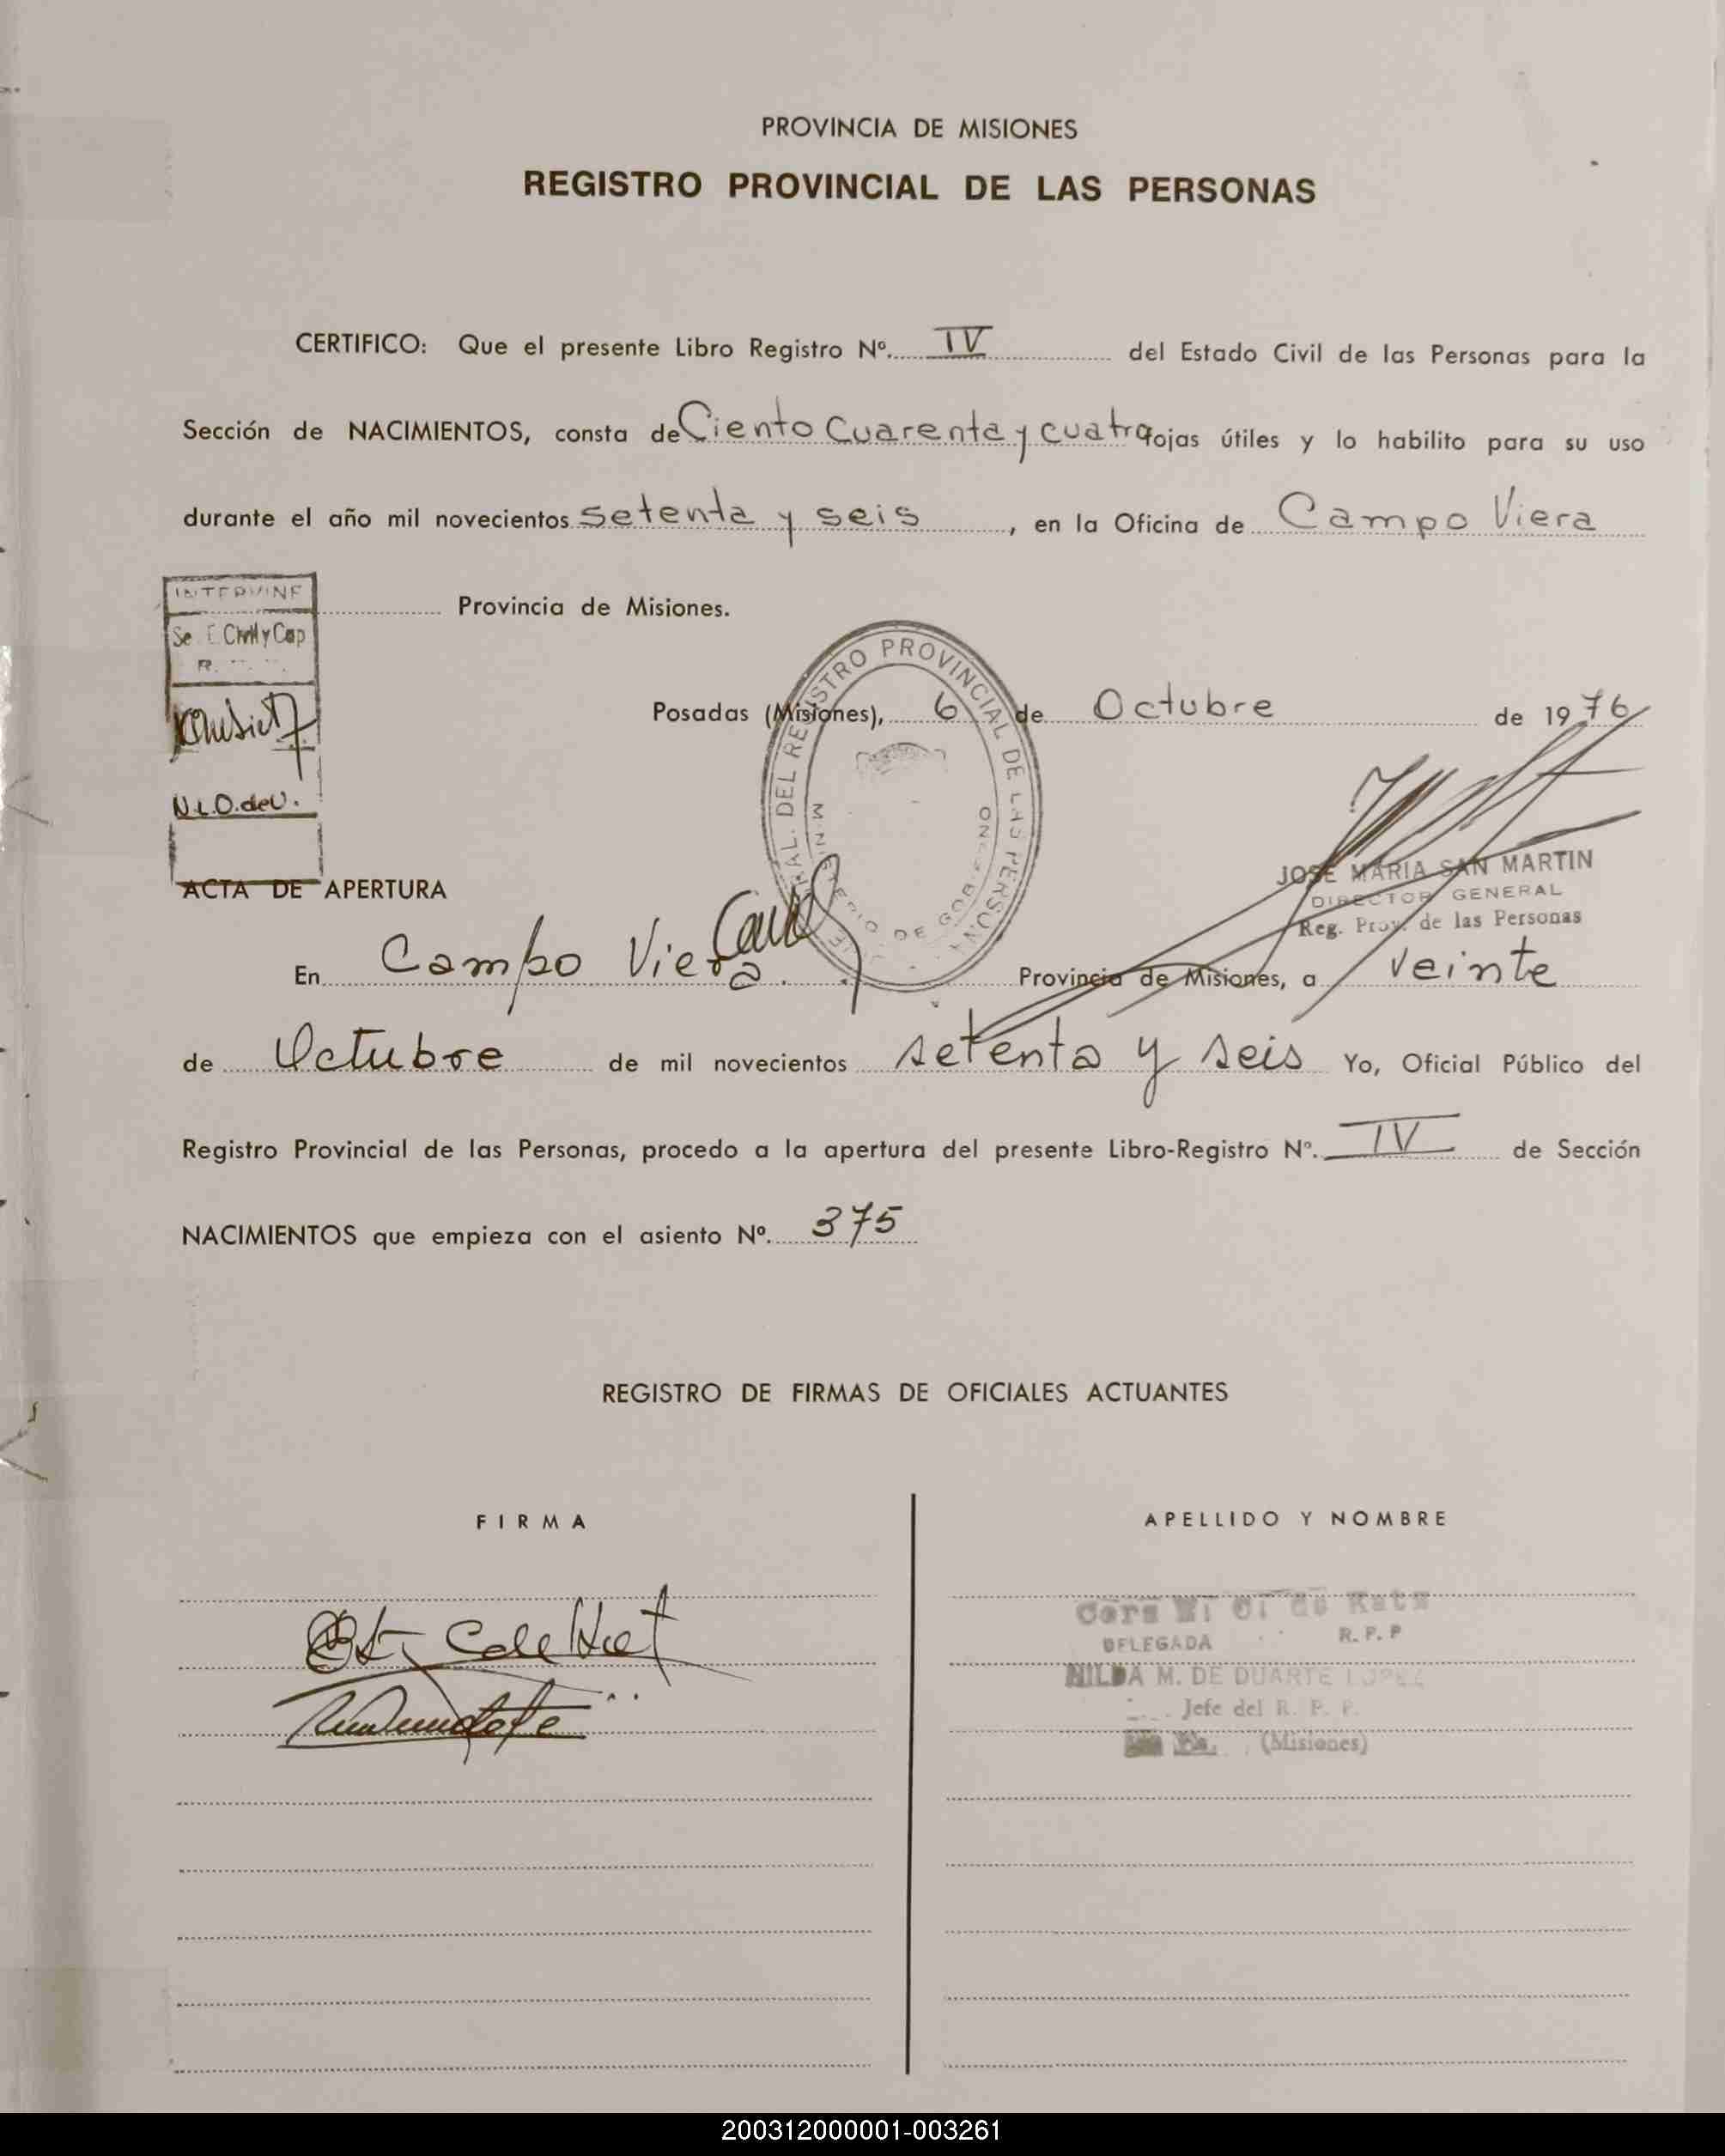 PROVINCIA DE MISIONES
REGISTRO PROVINCIAL DE LAS PERSONAS
CERTIFICO: Que el presente Libro Registro Nº. IV del Estado Civil de las Personas para la
Sección de NACIMIENTOS, consta de Ciento Cuarenta y cuatro ojas útiles y lo habilito para su uso
durante el año mil novecientos setenta y seis, en la Oficina de Campo Viera
Provincia de Misiones.
INTERVINE
Civil y Cap
N.L.O.deU.
REGISTRO PROVINCIAL DE LAS PERSONAS
MINISTERIO DE GOBIERNO
Posadas (Misiones), 6 de Octubre de 1976
JOSE MARIA SAN MARTIN
DIRECTOR GENERAL
Reg. Prov. de las Personas
ACTA DE APERTURA
En Campo Viera Provincia de Misiones, a veinte
de Octubre de mil novecientos setenta y seis Yo, Oficial Público del
Registro Provincial de las Personas, procedo a la apertura del presente Libro-Registro Nº. IV de Sección
NACIMIENTOS que empieza con el asiento Nº. 375
REGISTRO DE FIRMAS DE OFICIALES ACTUANTES
FIRMA APELLIDO Y NOMBRE
de Katz
DELEGADA R. P. P
HILDA M. DE DUARTE LOPEZ
Jefe del R. P. P.
(Misiones)
200312000001-003261